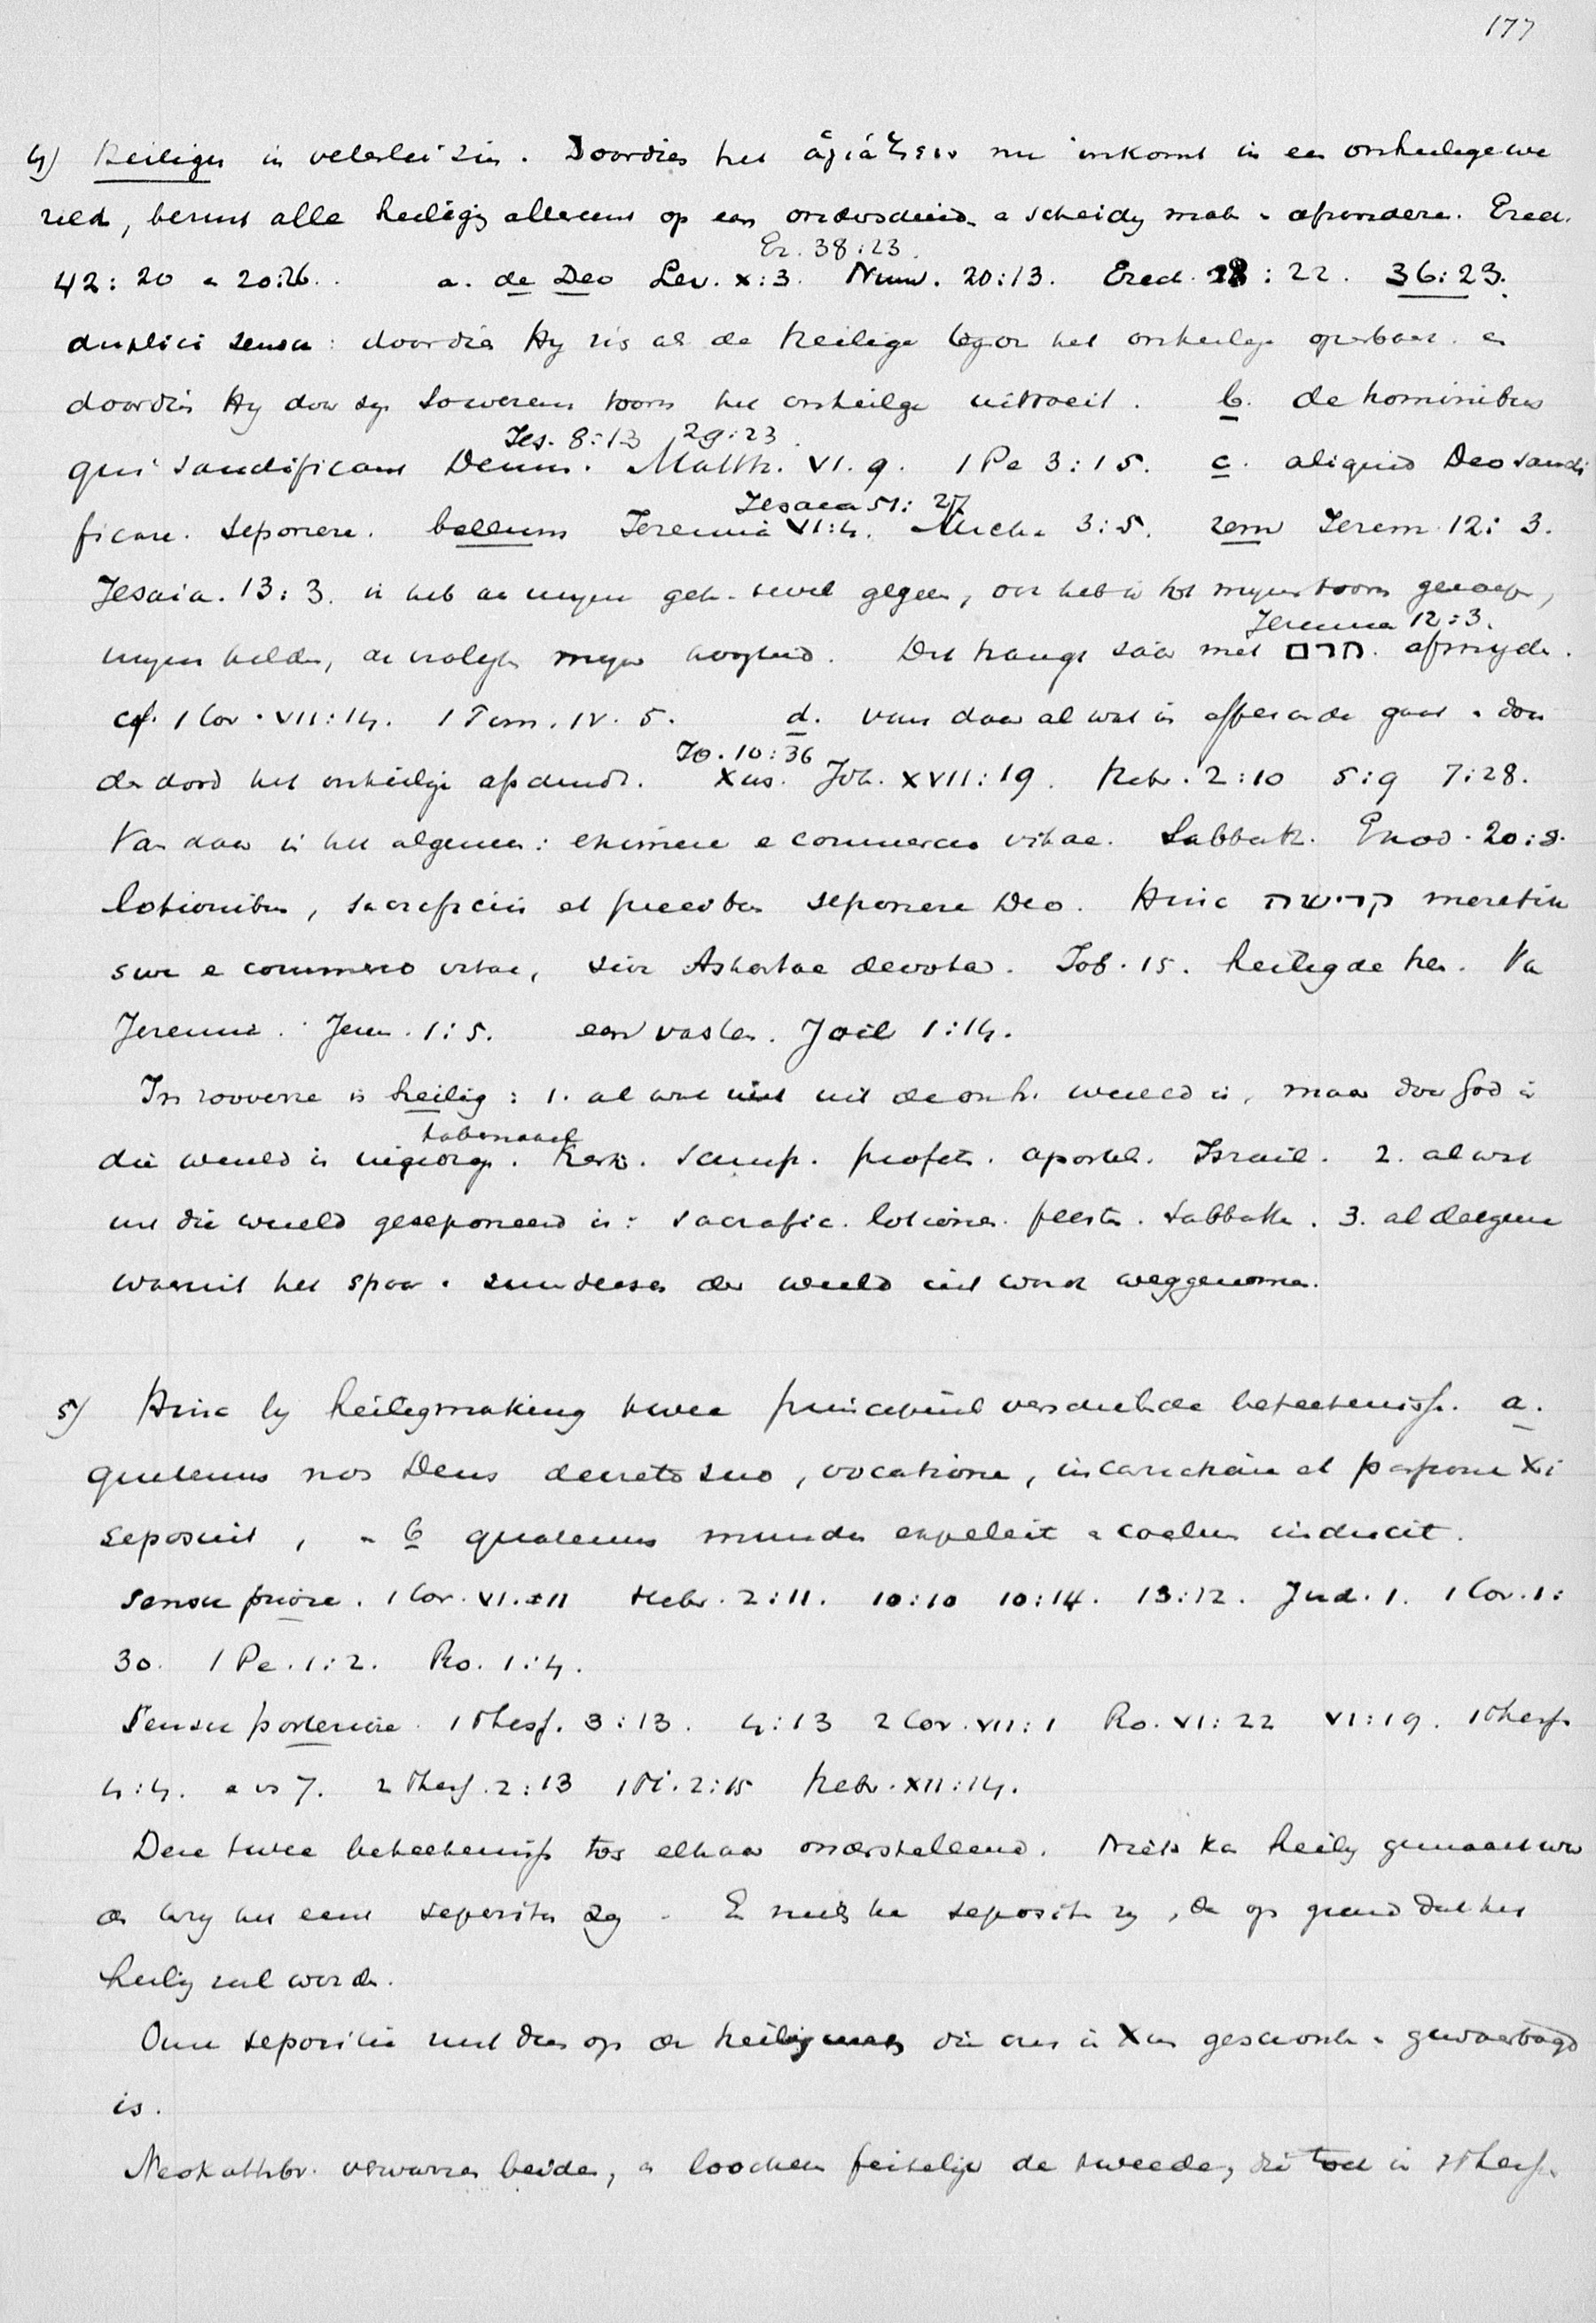 177
4) Heiligen in velerlei zin. Doordien het ἁγιάζειν nu inkomt in een onheilige we
reld, berust alle heilig allereerst op een onderscheid en scheiding mak en afzonderen. Ezech.
Ez. 38:23.
42:20 en 20:26. a. de Deo Lev. X:3. Num. 20:13. Ezech. 28:22. 36:23.
duplici sensu: doordien Hy zich als de heilige tegen het onheilige openbaart en
doordien Hy door zyn souverein toorn het onheilige uitroeit. b. de hominibus
Jes. 8:13 29:23.
qui sanctificant Deum. Matth. VI.9. 1 Pe 3:15. c. aliquid Deo sancti
Jesaia 51:27
ficare. seponere. bellum Jeremia VI:4. Micha 3:5. rem Jerem. 12:3.
Jesaia. 13:3. ik heb aan mijne geh. bevel gegeven, ook heb ik tot mijnen toorn geroepen,
Jeremia 12:3.
mijne helden, de vrolijken mijner hoogheid. Dit hangt saam met חרם. afsnyden.
cf. 1 Cor. VII:14. 1 Tim. IV. 5. d. van daar al wat in offerande gaat en door
Jo. 10:36
de dood het onheilige afscheidt. Xus. Joh. XVII:19. Hebr. 2:10 5:9 7:28.
Van daar in het algemeen: eximere e commercio vitae. Sabbath. Exod. 20:8.
lotionibus, sacrificiis et precibus seponere Deo. Hinc קדישה meretrix
sive e commercio vitae, sive Astartae devota. Job. 15. heiligde hen. Van
Jeremia. Jerem. 1:5. een vasten. Joël 1:14.
In zooverre is heilig: 1. al wat niet uit de onh. wereld is, maar door God in
tabernakel
die wereld is ingeorg. Kerk. Script. profeten. apostel. Israël. 2. al wat
uit die wereld geseponeerd is: sacrific. lotiones. feesten. sabbath. 3. al datgene
waaruit het spoor en zuurdeesem der wereld uit wordt weggenomen.
5) Hinc by heiligmaking twee principieel verschillende beteekenissen. a.
quatenus nos Deus decreto suo, vocatione, incarnatione et passione Xi
seposuit, en b quatenus mundum expellit en coelum inducit.
Sensu priore. 1 Cor. VI.11 Hebr. 2:11. 10:10 10:14. 13:12. Jud. 1. 1 Cor. 1:
30. 1 Pe. 1:2. Ro. 1:4.
Sensu posteriore. 1 Thess. 3:13. 4:13 2 Cor. VII:1 Ro. VI:22 VI:19. 1 Thess.
4:4. en vs 7. 2 Thess. 2:13 1 Ti. 2:15 Hebr. XII:14.
Deze twee beteekenissen tos elkaar onderstellend. Niets kan heilig gemaakt wor
de wy het eerst seposita zy. En niets kan seposita zy, dan op grond dat het
heilig zal worden.
Onze sepositie rust dus op de heiligmak die ons in Xus geschonken en gewaarborgd
is.
Neokathbr. verwarren beiden, en loochen feitelijk de tweede, die toch in 1 Thess.